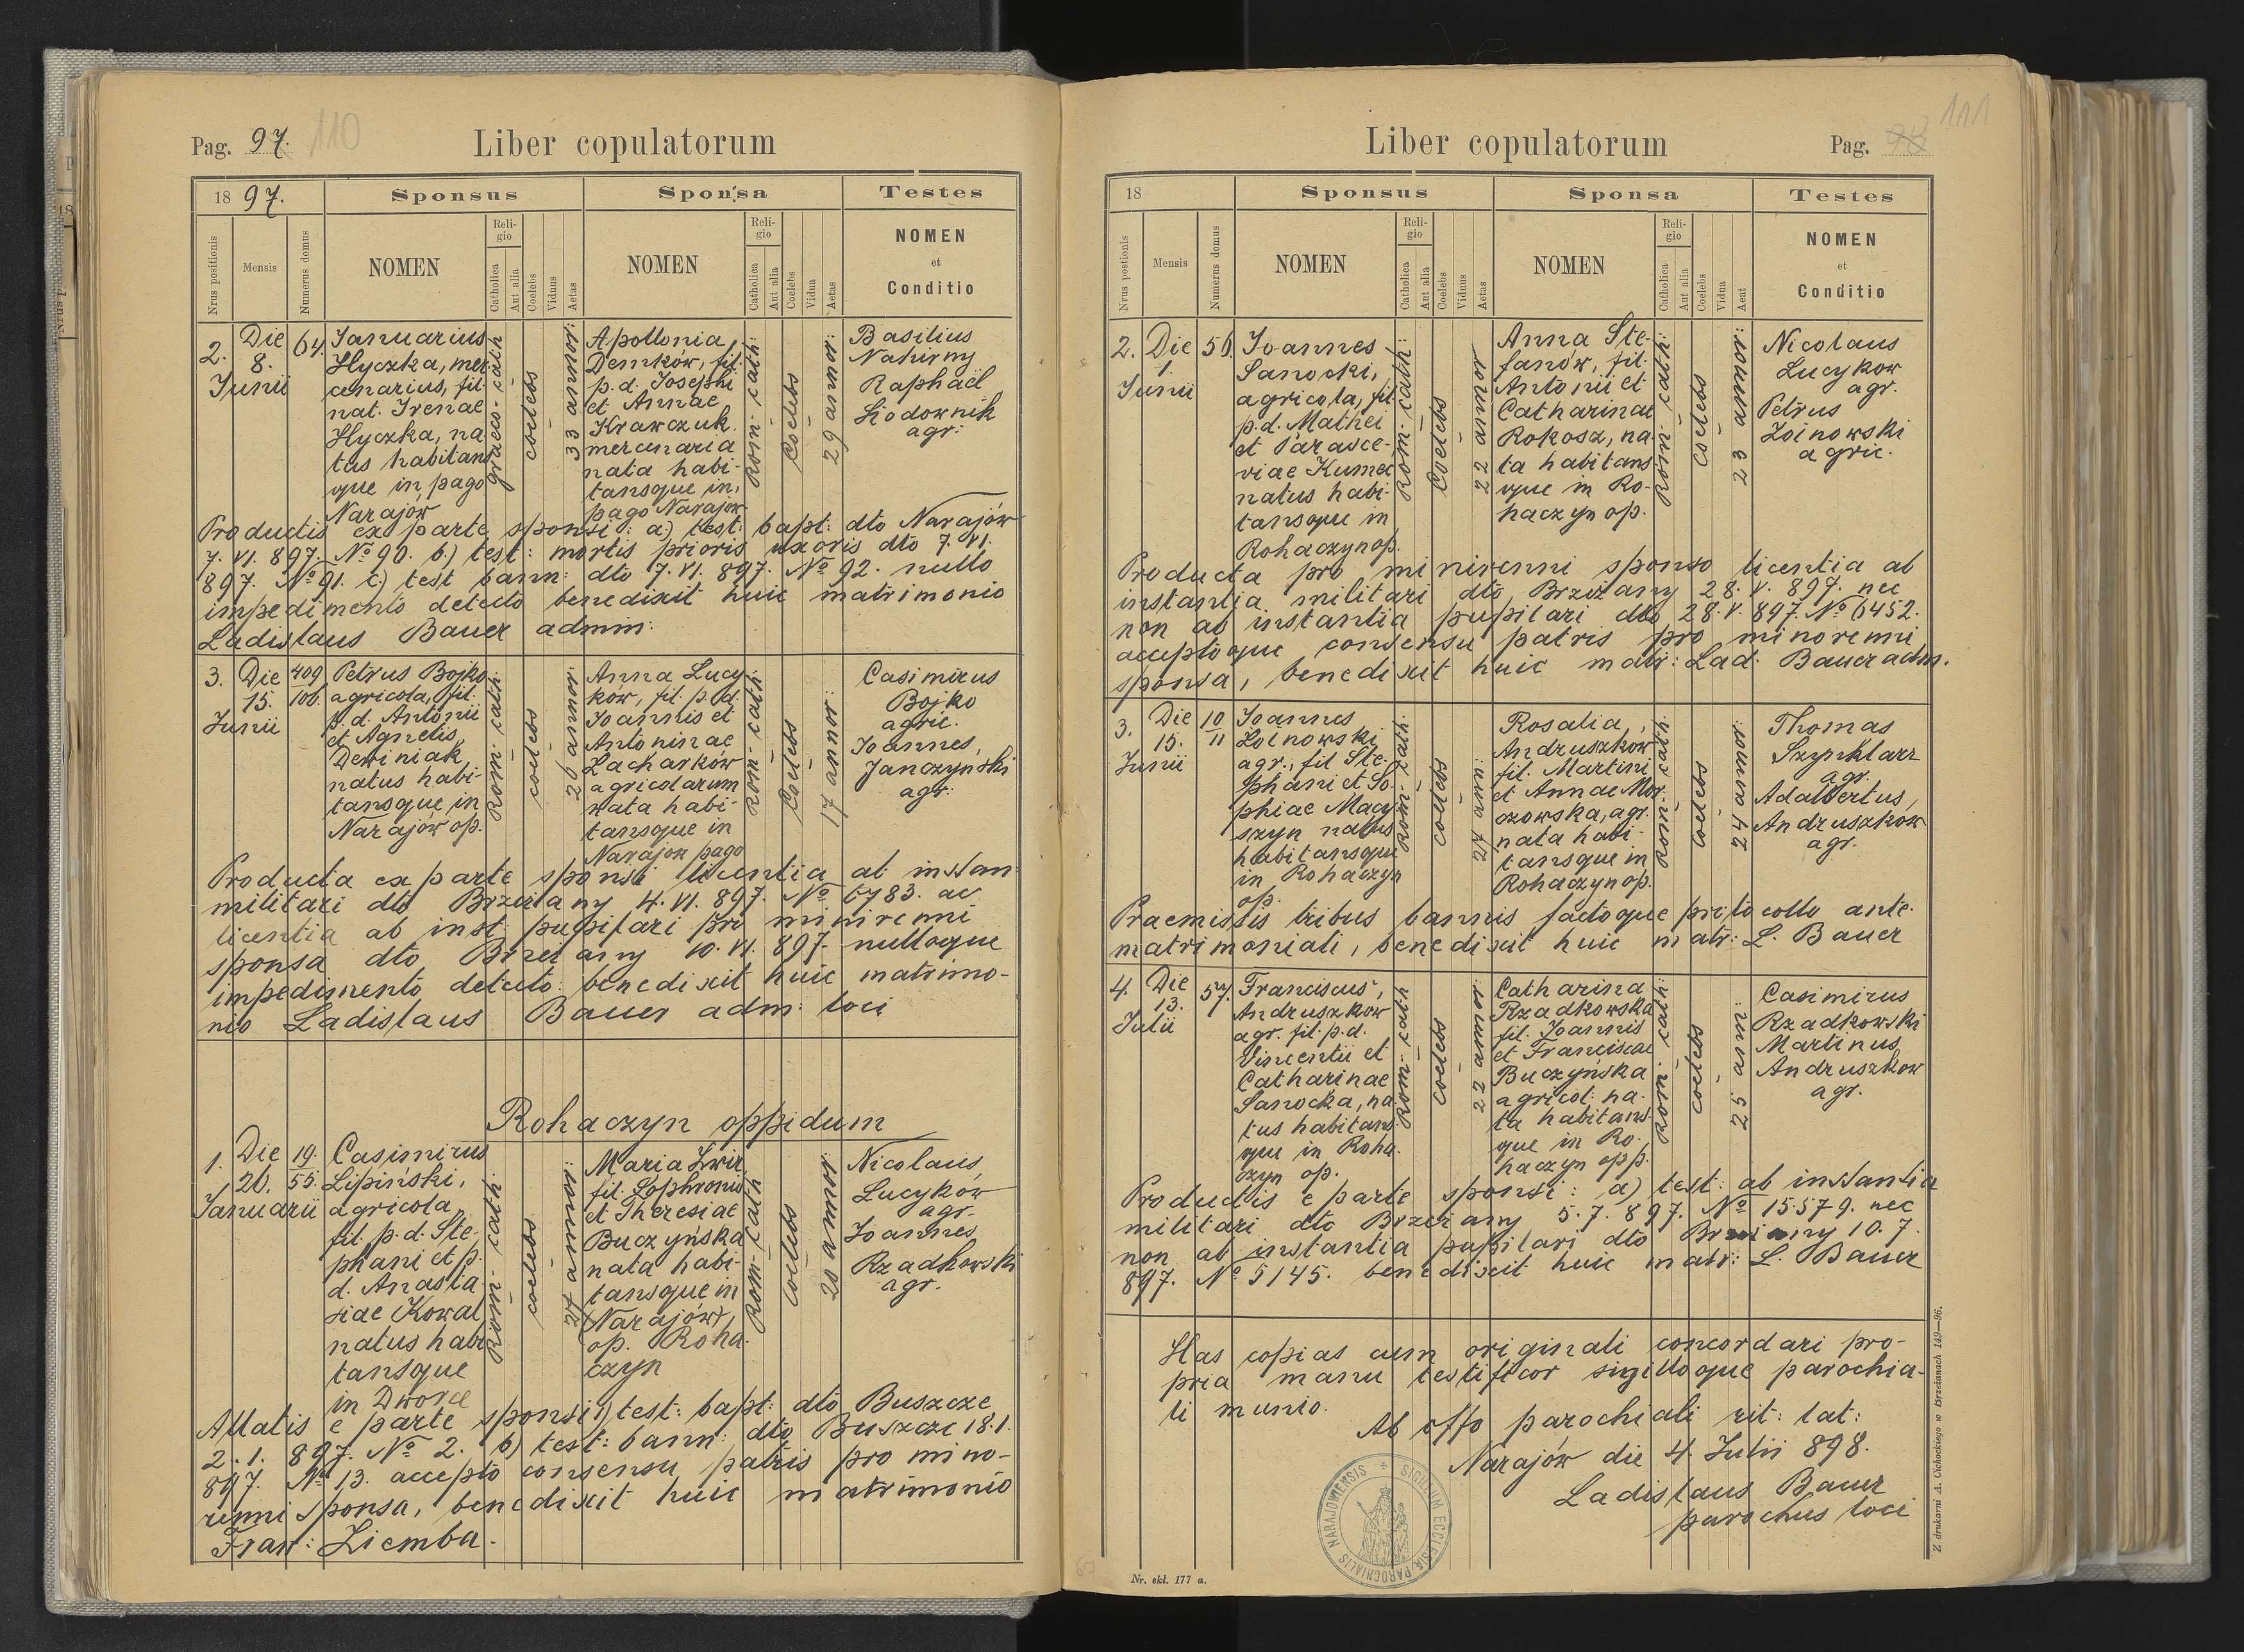 Pag. 97. 110
Liber copulatorum
18 97.
Sponsus
Sponsa
Testes
Nrus positionis
Mensis
Numerus domus
NOMEN
Religio
Catholica
Aut alia
Coelebs
Viduus
Aetas
NOMEN
Religio
Catholica
Aut alia
Coelebs
Vidua
Aetas
NOMEN
et
Conditio
2.
Die
8.
Junii
64.
Januarius
Hyczka, mer
cenarius, fil.
nat. Irenae
Hyczka, na
tus habitans
que in pago
Narajów
graeco-cath
coelebs
33 annor:
Apollonia
Demków, fil.
p. d. Josephi
et Annae
Krawczuk.
mercenaria
nata habi-
tansque in
pago Narajów
Rom: cath:
Coelebs
29 annor:
Basilius
Nahirny
Raphäel
Lodownik
agr:
Productis ex parte sponsi: a) test: bapt: dto Narajów
7. VI. 897. No 90. b.) test: mortis prioris uxoris dto 7. VI.
897. No 91. c.) test bann: dto 7. VI. 897. No 92. nullo
impedimento detecto benedixit huic matrimonio
Ladislaus Bauer admin:
3.
Die
15.
Junii
409
106.
Petrus Bojko
agricola, fil.
p. d. Antonii
et Agnetis,
Dewiniak
natus habi-
tansque in
Narajów op.
Rom: cath:
coelebs
26 annor:
Anna Lucy
ków, fil. p. d.
Joannis et
Antoninae
Zacharków
agricolarum
nata habi-
tansque in
Narajow pago
Rom: cath:
Coelebs
17 annor:
Casimirus
Bojko
agric.
Joannes,
Janczynski
agr:
Producta ex parte sponsi licentia ab instan:
militari dto Brzezany 4. VI. 897. No 6783. ac
licentia ab inst: pupilari pro minirenni
sponsa dto Brzezany 10. VI. 897. nulloque
impedimento detecto: benedixit huic matrimo-
nio Ladislaus Bauer adm: loci
Rohaczyn oppidum
1.
Die
26.
Januarii
19.
55.
Casimirus
Lipiński,
agricola
fil. p. d. Ste
phani et p.
d. Anasta
siae Kowal
natus habi
tansque
in Dworce
Rom: cath:
coelebs
27 annor:
Maria Zwir
fil. Sophronii
et Theresiae
Buczyńska
nata habi-
tansque in
(Narajów),
op. Roha-
czyn
Rom: cath
coelebs
20 annor:
Nicolaus,
Lucyków
agr.
Joannes,
Rzadkowski
agr.
Allatis e parte sponsi: a) test: bapt: dto Buszcze
2. 1. 897. No 2. b) test: bann: dto Buszcze 18. 1.
897. No 13. accepto consensu patris pro mino-
renni sponsa, benedixit huic matrimonio
Fran: Ziemba.
Liber copulatorum
Pag. 98 111
18
Sponsus
Sponsa
Testes
Nrus postionis
Mensis
Numerus domus
NOMEN
Religio
Catholica
Aut alia
Coelebs
Viduus
Aetas
NOMEN
Religio
Catholica
Aut alia
Coelebs
Vidua
Aeat
NOMEN
et
Conditio
2.
Die
1.
Junii
56.
Joannes
Sanocki,
agricola, fil.
p. d. Mathei
et Parasce-
viae Kumec
natus habi-
tansque in
Rohaczyn op.
Rom: cath:
Coelebs
22 annor
Anna Ste-
fanów, fil.
Antonii et
Catharinae
Rokosz, na
ta habitans
que in Ro-
haczyn op.
Rom: cath:
coelebs
23 annor:
Nicolaus
Lucykow
agr.
Petrus
Zoinowski
agric.
Producta pro minirenni sponso licentia ab
instantia militari dto Brzeżany 28. V. 897. nec
non ab instantia pupilari dto 28. V. 897. No 6452.
acceptoque consensu patris pro minorenni
sponsa, benedixit huic matr: Lad. Bauer adm.
3.
Die
15.
Junii
10
11
Joannes
Zoinowski
agr., fil Ste-
phani et So-
phiae Macy
szyn natus
habitansque
in Rohaczyn
op.
Rom: cath:
coelebs
27 ann:
Rosalia,
Andruszkow
fil. Martini
et Annae Mor
czowska, agr.
nata habi-
tansque in
Rohaczyn op.
Rom: cath:
coelebs
24 annor:
Thomas
Szynklarz
agr.
Adalbertus,
Andruszkow
agr.
Praemissis tribus bannis factoque protocollo ante-
matrimoniali, benedixit huic matr: L. Bauer
4.
Die
13.
Julii
57.
Franciscus,
Andruszkow
agr. fil. p. d.
Vincentii et
Catharinae
Sanocka, na
tus habitans
que in Roha
czyn op.
Rom: cath
coelebs
22 annor:
Catharina
Rzadkowska
fil. Joannis
et Franciscae
Buczyńska
agricol: na-
ta habitans
que in Ro-
haczyn opp.
Rom: cath:
coelebs
25 ann:
Casimirus
Rzadkowski
Martinus,
Andruszkow
agr.
Productis e parte sponsi: a) test: ab instantia
militari dto Brzezany 5. 7. 897. No 15579. nec
non ab instantia pupilari dto Brzezany 10. 7.
897. No 5145. benedixit huic matr: L. Bauer
Has copias cum originali concordari pro-
pria manu testificor sigilloque parochia-
li munio.
Ab offo parochiali rit: lat:
Narajów die 4. Julii 898.
Ladislaus Bauer
parochus loci
SIGILLUM ECCLESIÆ PAROCHIALIS NARAJOWIENSIS
Nr. skł. 177 a.
Z drukarni A. Cichockiego w Brzeżanach 149—96.